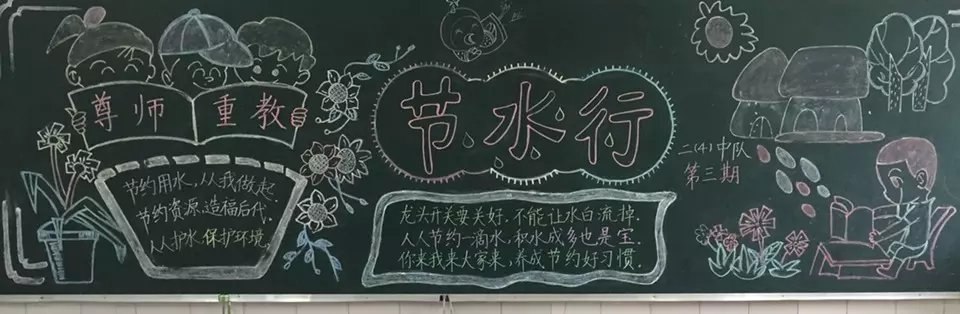 尊师重教
节约用水,从我做起.
节约资源,造福后代.
人人护水,保护环境.
节水行
龙头开关要关好.不能让水白流掉.
人人节约一滴水,积水成多也是宝.
你来我来大家来,养成节约好习惯.
二(4)中队
第三期